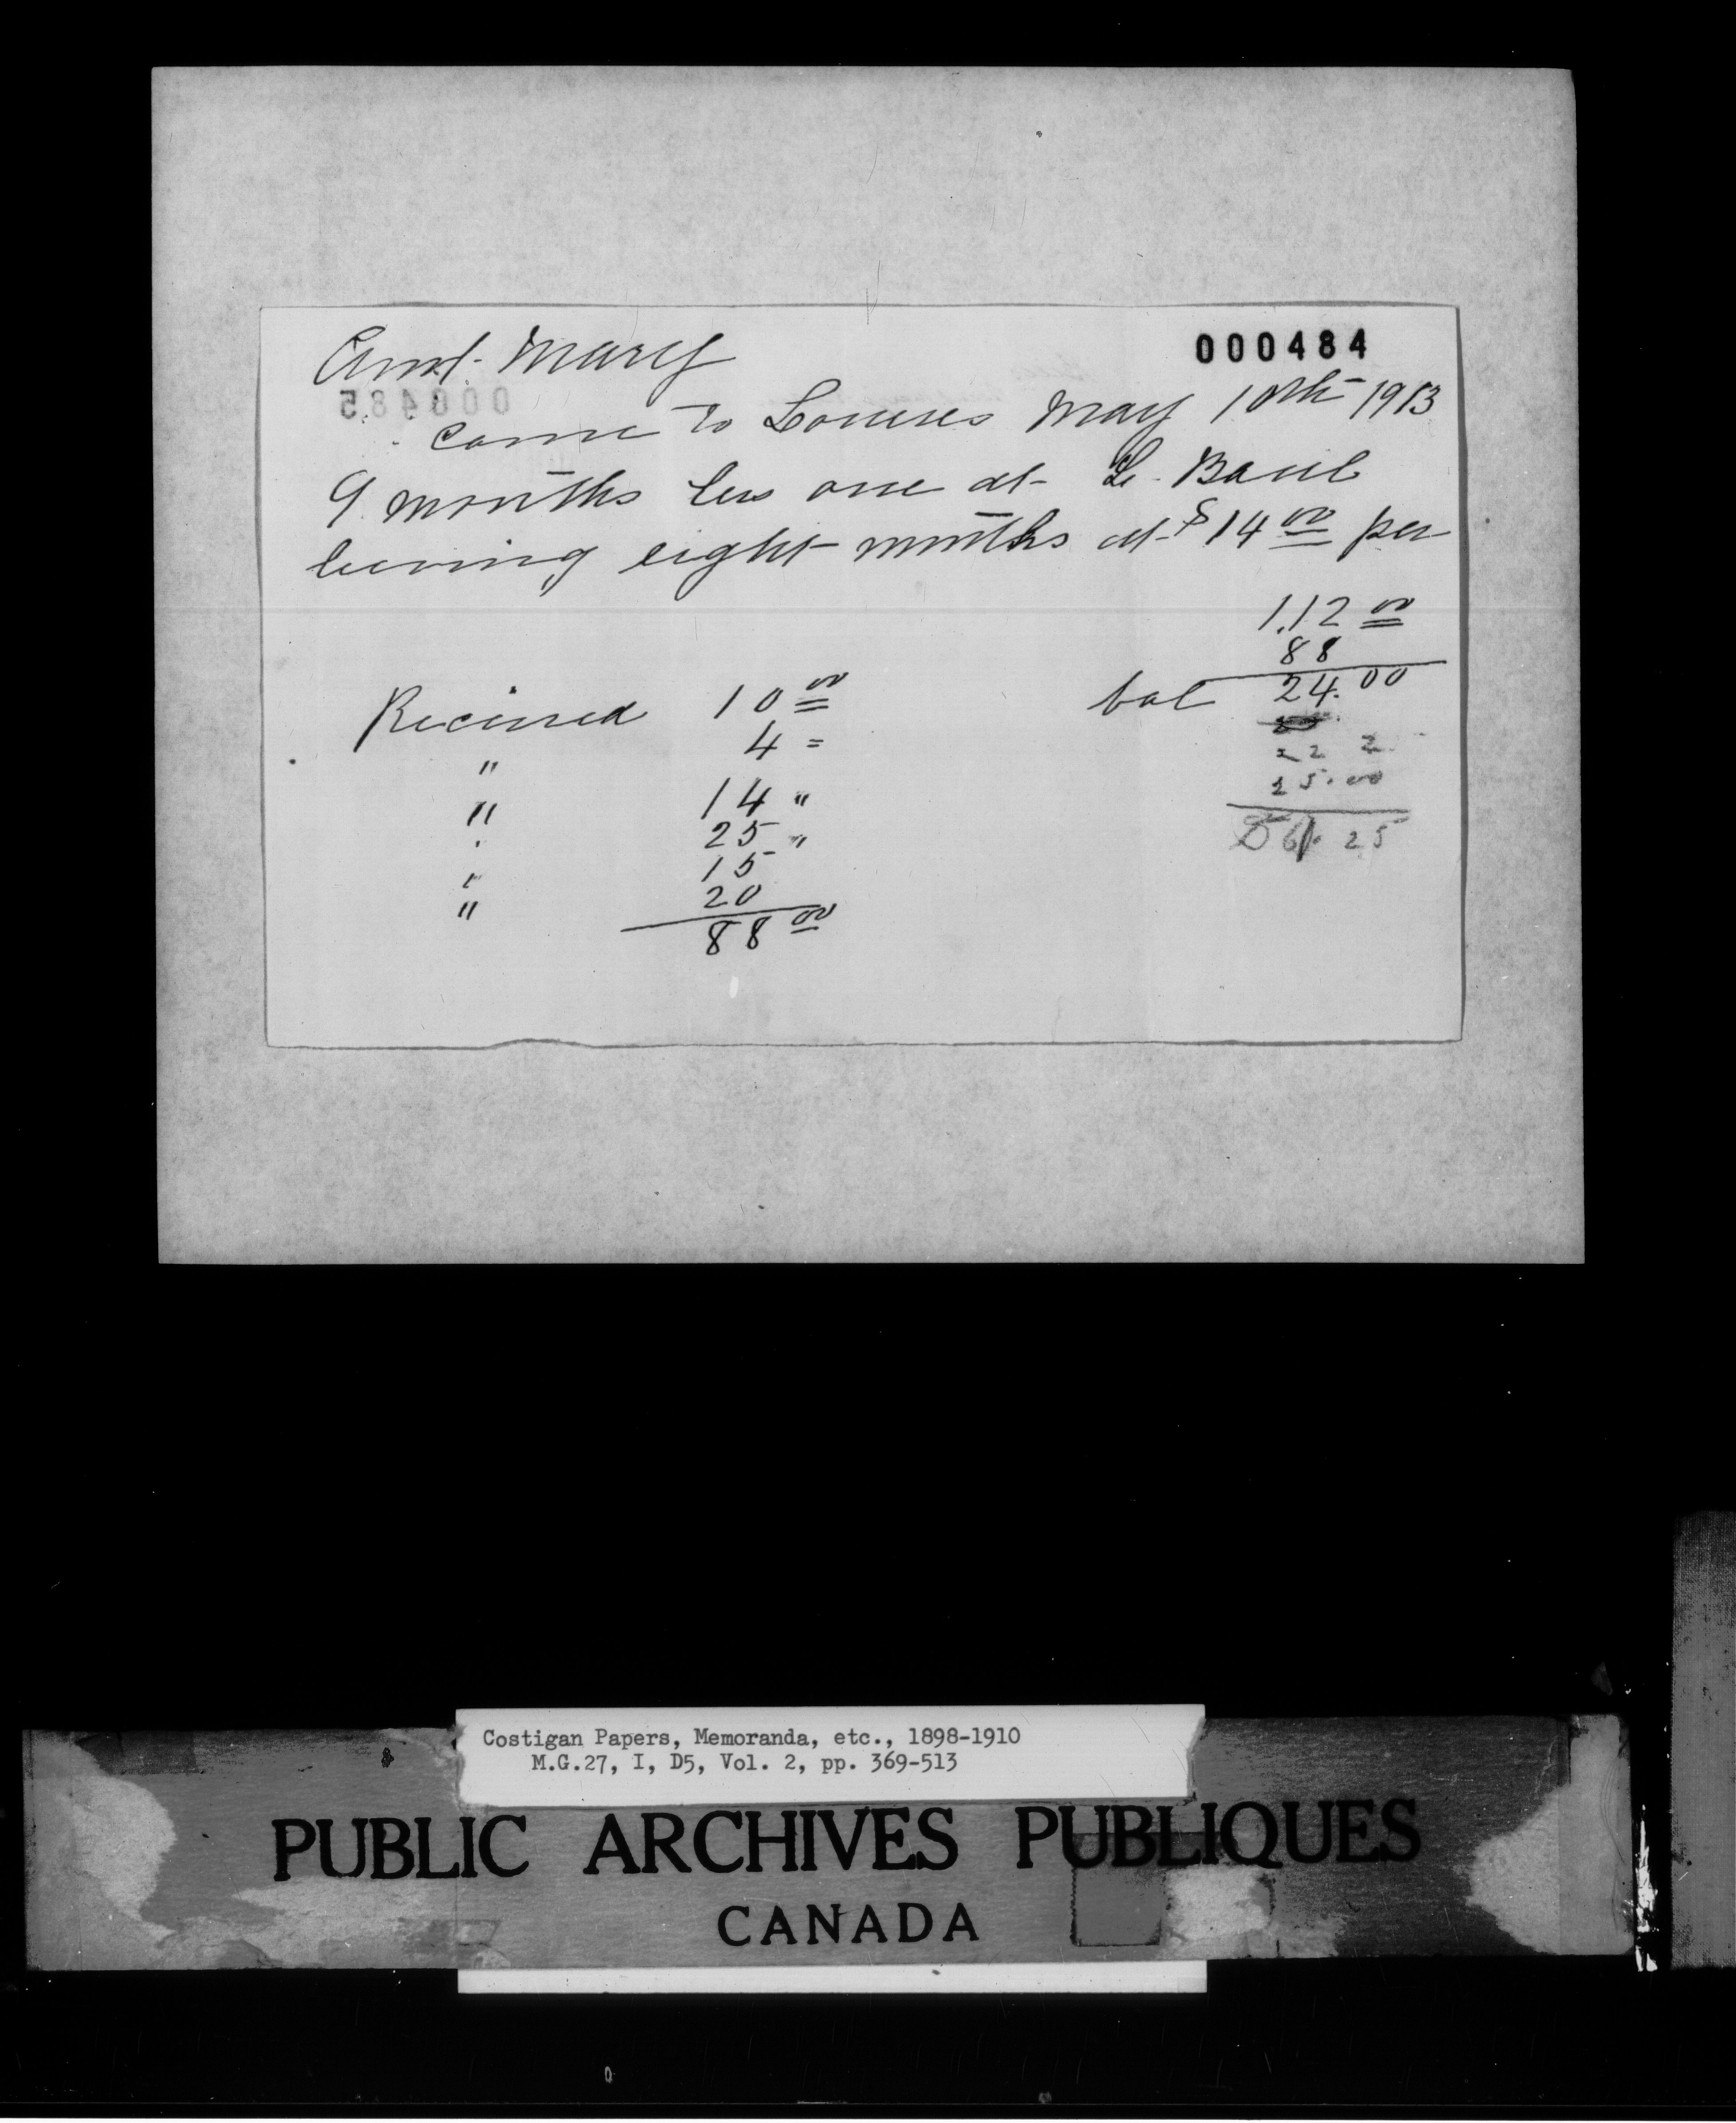 Aunt Mary
000484
000485
came to Louises May 10th 1913
9 months less one at St. Basil
leaving eight months at $14 00 per
1.12 00
88
bal 24.00
22 2
25.00
56. 25
Received 10 00
" 4 =
" 14 "
" 25 "
" 15
" 20
88 00
Costigan Papers, Memoranda, etc., 1898-1910
M.G.27, I, D5, Vol. 2, pp. 369-513
PUBLIC ARCHIVES PUBLIQUES
CANADA